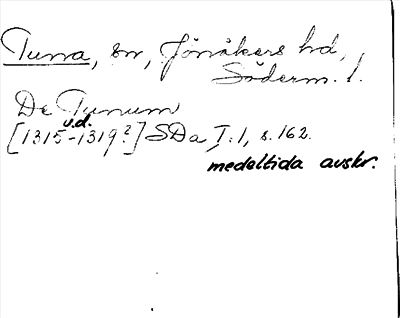 Tuna, sn, Jönåkers hd,
Söderm. l.
De Tunum
u.d.
[1315-1319?] SDa I:1, s. 162.
medeltida avskr.